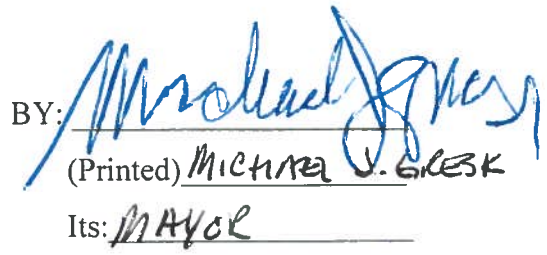 BY: Michael J. Gresk
(Printed) MICHAEL J. GRESK
Its: MAYOR